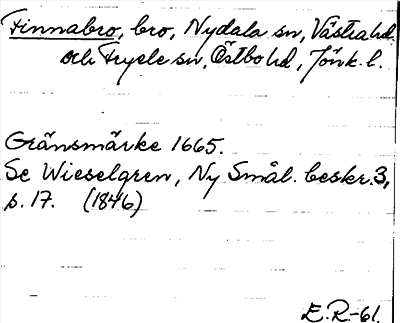 Finnabro, bro, Nydala sn, Västra hd.
och Fryele sn, Östbo hd, Jönk. l.
Gränsmärke 1665.
Se Wieselgren, Ny Smål. beskr. 3,
s. 17. (1846)
E.R.-61.